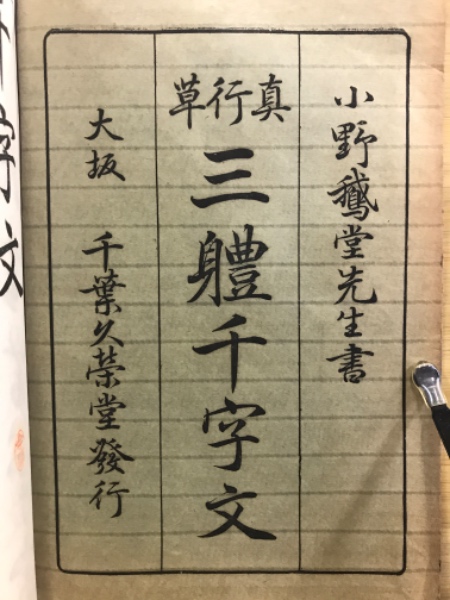 小野鵞堂先生書
真行草
三體千字文
大坂 千葉久榮堂發行
千字文